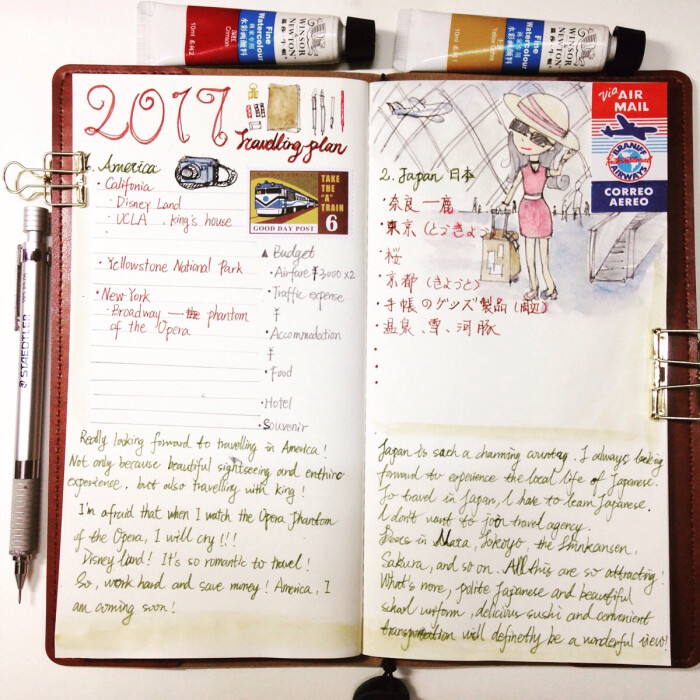 WINSOR
NEWTON
Fine
Watercolour
水彩画颜料
深红
Crimson
10ml
WINSOR
NEWTON
Fine
Watercolour
水彩画颜料
Yellow Ochre
10ml
2017
Travelling plan
1. America
· Califonia
· Disney Land
· UCLA . king's house
· Yellowstone National Park
· New York
· Broadway — the phantom
of the Opera
TAKE
THE
"A"
TRAIN
6
GOOD DAY POST
▲ Budget
· Airfare ¥3000 x2
· Traffic expense
¥
· Accommodation
¥
· Food
· Hotel
· Souvenir
Really looking forward to travelling in America!
Not only because beautiful sightseeing and enthirc
experience, but also travelling with king!
I'm afraid that when I watch the Opera Phantom
of the Opera, I will cry!!!
Disney land! It's so romantic to travel!
So, work hard and save money! America, I
am coming soon!
2. Japan 日本
· 奈良 — 鹿
· 東京 (とうきょう)
· 桜
· 京都 (きょうと)
· 手帳のグッズ製品
· 温泉、雪、河豚
Via AIR
MAIL
BRANIFF
International
AIRWAYS
CORREO
AEREO
Japan is such a charming country. I always looking
forward to experience the local life of Japanese.
To travel in Japan, I have to learn Japanese.
I don't want to join travel agency.
Deers in Nara, Tokoyo, the Shinkansen,
Sakura, and so on. All this are so attracting!
What's more, polite Japanese and beautiful
school uniform, delicious sushi and convenient
transportation will definetly be a wonderful view!
STAEDTLER